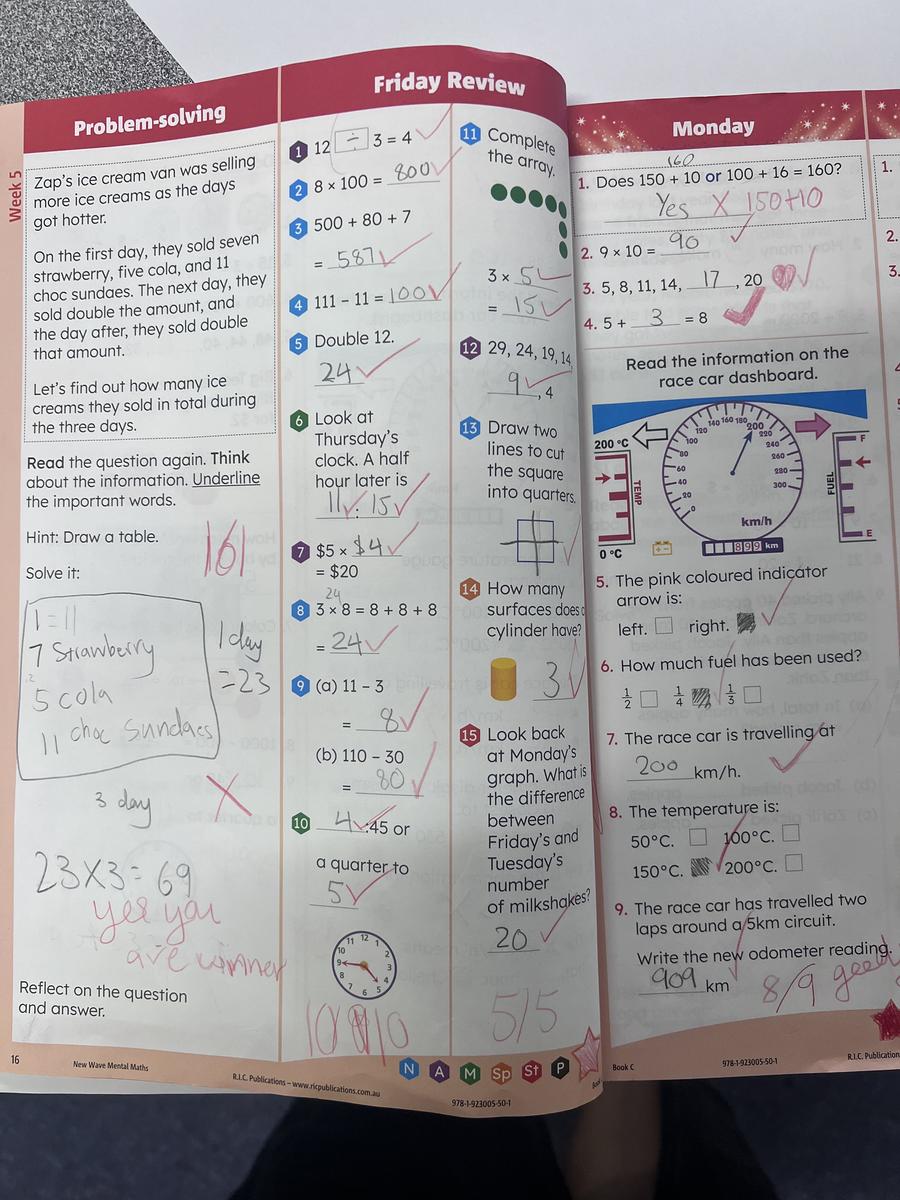 Week 5
Problem-solving
Zap's ice cream van was selling
more ice creams as the days
got hotter.
On the first day, they sold seven
strawberry, five cola, and 11
choc sundaes. The next day, they
sold double the amount, and
the day after, they sold double
that amount.
Let's find out how many ice
creams they sold in total during
the three days.
Read the question again. Think
about the information. Underline
the important words.
Hint: Draw a table.
161
Solve it:
1=11
7 Strawberry
5 cola
11 choc Sundaes
1 day
=23
3 day
23X3=69
yes you
are winner
Reflect on the question
and answer.
16
New Wave Mental Maths
Friday Review
1 12 ÷ 3 = 4
2 8 × 100 = 800
3 500 + 80 + 7
= 587
4 111 – 11 = 100
5 Double 12.
24
6 Look at
Thursday's
clock. A half
hour later is
11:15
7 $5 × $4
= $20
24
8 3 × 8 = 8 + 8 + 8
= 24
9 (a) 11 – 3
= 8
(b) 110 – 30
= 80
10 4:45 or
a quarter to
5
11 12 1 2 3 4 5 6 7 8 9 10
11 Complete
the array.
3 × 5
= 15
12 29, 24, 19, 14,
9, 4
13 Draw two
lines to cut
the square
into quarters.
14 How many
surfaces does
cylinder have?
3
15 Look back
at Monday's
graph. What is
the difference
between
Friday's and
Tuesday's
number
of milkshakes?
20
5/5
N A M Sp St P
R.I.C. Publications – www.ricpublications.com.au
978-1-923005-50-1
Monday
160
1. Does 150 + 10 or 100 + 16 = 160?
Yes X 150+10
2. 9 × 10 = 90
3. 5, 8, 11, 14, 17, 20
4. 5 + 3 = 8
Read the information on the
race car dashboard.
200 °C
TEMP
0 °C
0 20 40 60 80 100 120 140 160 180 200 220 240 260 280 300
km/h
899 km
F
FUEL
E
5. The pink coloured indicator
arrow is:
left. right.
6. How much fuel has been used?
1/2 1/4 1/3
7. The race car is travelling at
200 km/h.
8. The temperature is:
50°C. 100°C.
150°C. 200°C.
9. The race car has travelled two
laps around a 5km circuit.
Write the new odometer reading.
909 km
8/9 good
Book C
978-1-923005-50-1
R.I.C. Publication
1.
2.
3.